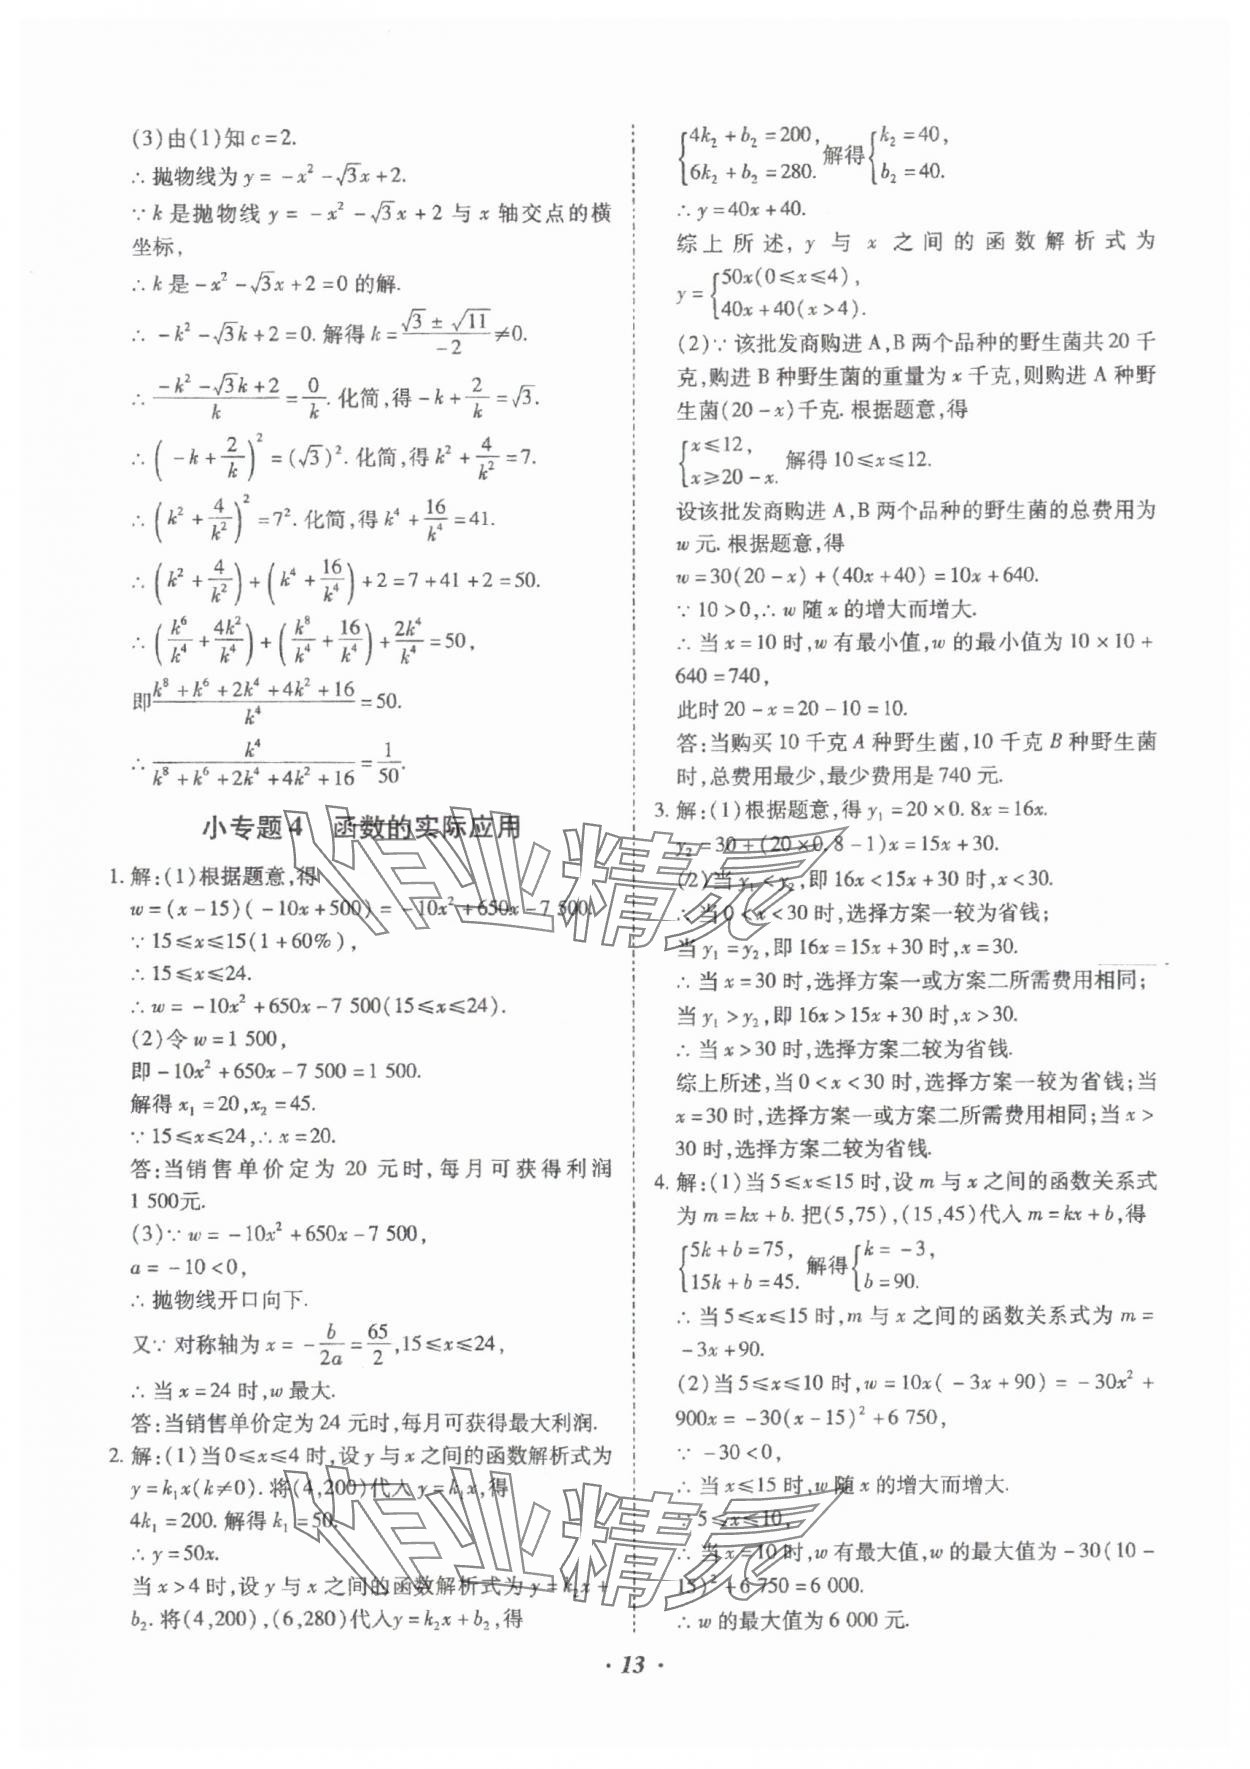 (3)由(1)知 c=2.
∴ 抛物线为 y = -x² -√3x+2.
∵ k 是抛物线 y = -x² -√3x+2 与 x 轴交点的横
坐标,
∴ k 是 -x² -√3x+2=0 的解.
∴ -k² -√3k+2=0. 解得 k = (√3 ± √11)/(-2) ≠0.
∴ (-k² -√3k+2)/k = 0/k. 化简,得 -k + 2/k = √3.
∴ (-k + 2/k)² = (√3)². 化简,得 k² + 4/k² = 7.
∴ (k² + 4/k²)² = 7². 化简,得 k⁴ + 16/k⁴ = 41.
∴ (k² + 4/k²) + (k⁴ + 16/k⁴) + 2 = 7 + 41 + 2 = 50.
∴ (k⁶/k⁴ + 4k²/k⁴) + (k⁸/k⁴ + 16/k⁴) + 2k⁴/k⁴ = 50,
即 (k⁸ + k⁶ + 2k⁴ + 4k² + 16)/k⁴ = 50.
∴ k⁴/(k⁸ + k⁶ + 2k⁴ + 4k² + 16) = 1/50.
小专题4 函数的实际应用
1. 解:(1)根据题意,得
w = (x -15)( -10x +500) = -10x² +650x -7 500.
∵ 15≤x≤15(1+60%),
∴ 15≤x≤24.
∴ w = -10x² +650x -7 500(15≤x≤24).
(2)令 w =1 500,
即 -10x² +650x -7 500 =1 500.
解得 x₁ =20,x₂ =45.
∵ 15≤x≤24,∴ x =20.
答:当销售单价定为 20 元时,每月可获得利润
1 500元.
(3)∵ w = -10x² +650x -7 500,
a = -10 <0,
∴ 抛物线开口向下.
又∵ 对称轴为 x = -b/2a = 65/2,15≤x≤24,
∴ 当 x =24 时,w 最大.
答:当销售单价定为 24 元时,每月可获得最大利润.
2. 解:(1)当 0≤x≤4 时,设 y 与 x 之间的函数解析式为
y = k₁x(k≠0). 将(4,200)代入 y = k₁x,得
4k₁ =200. 解得 k₁ =50.
∴ y =50x.
当 x >4 时,设 y 与 x 之间的函数解析式为 y = k₂x +
b₂. 将(4,200),(6,280)代入y = k₂x + b₂,得
{4k₂ + b₂ =200, 6k₂ + b₂ =280. 解得 {k₂ =40, b₂ =40.
∴ y =40x +40.
综上所述, y 与 x 之间的函数解析式为
y = {50x(0≤x≤4), 40x +40(x >4).
(2)∵ 该批发商购进 A,B 两个品种的野生菌共 20 千
克,购进 B 种野生菌的重量为 x 千克,则购进 A 种野
生菌(20 -x)千克. 根据题意,得
{x≤12, x≥20 -x. 解得 10≤x≤12.
设该批发商购进 A,B 两个品种的野生菌的总费用为
w 元. 根据题意,得
w =30(20 -x) + (40x +40) =10x +640.
∵ 10 >0,∴ w 随 x 的增大而增大.
∴ 当 x =10 时,w 有最小值,w 的最小值为 10 ×10 +
640 =740,
此时 20 -x =20 -10 =10.
答:当购买 10 千克 A 种野生菌,10 千克 B 种野生菌
时,总费用最少,最少费用是 740 元.
3. 解:(1)根据题意,得 y₁ =20 ×0.8x =16x.
y₂ =30 + (20 ×0.8 -1)x =15x +30.
(2)当 y₁ < y₂,即 16x <15x +30 时,x <30.
∴ 当 0 < x <30 时,选择方案一较为省钱;
当 y₁ = y₂,即 16x =15x +30 时,x =30.
∴ 当 x =30 时,选择方案一或方案二所需费用相同;
当 y₁ > y₂,即 16x >15x +30 时,x >30.
∴ 当 x >30 时,选择方案二较为省钱.
综上所述,当 0 < x <30 时,选择方案一较为省钱;当
x =30 时,选择方案一或方案二所需费用相同;当 x >
30 时,选择方案二较为省钱.
4. 解:(1)当 5≤x≤15 时,设 m 与 x 之间的函数关系式
为 m = kx + b. 把(5,75),(15,45)代入 m = kx + b,得
{5k + b =75, 15k + b =45. 解得 {k = -3, b =90.
∴ 当 5≤x≤15 时,m 与 x 之间的函数关系式为 m =
-3x +90.
(2)当 5≤x≤10 时,w =10x( -3x +90) = -30x² +
900x = -30(x -15)² +6 750,
∵ -30 <0,
∴ 当 x≤15 时,w 随 x 的增大而增大.
∵ 5≤x≤10,
∴ 当 x =10 时,w 有最大值,w 的最大值为 -30(10 -
15)² +6 750 =6 000.
∴ w 的最大值为 6 000 元.
· 13 ·
作业精灵
作业精灵